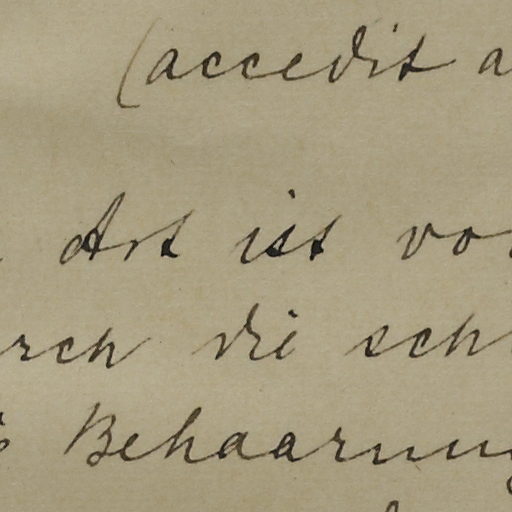 (accedit a
Art ist vo
rch die sch
Behaarung